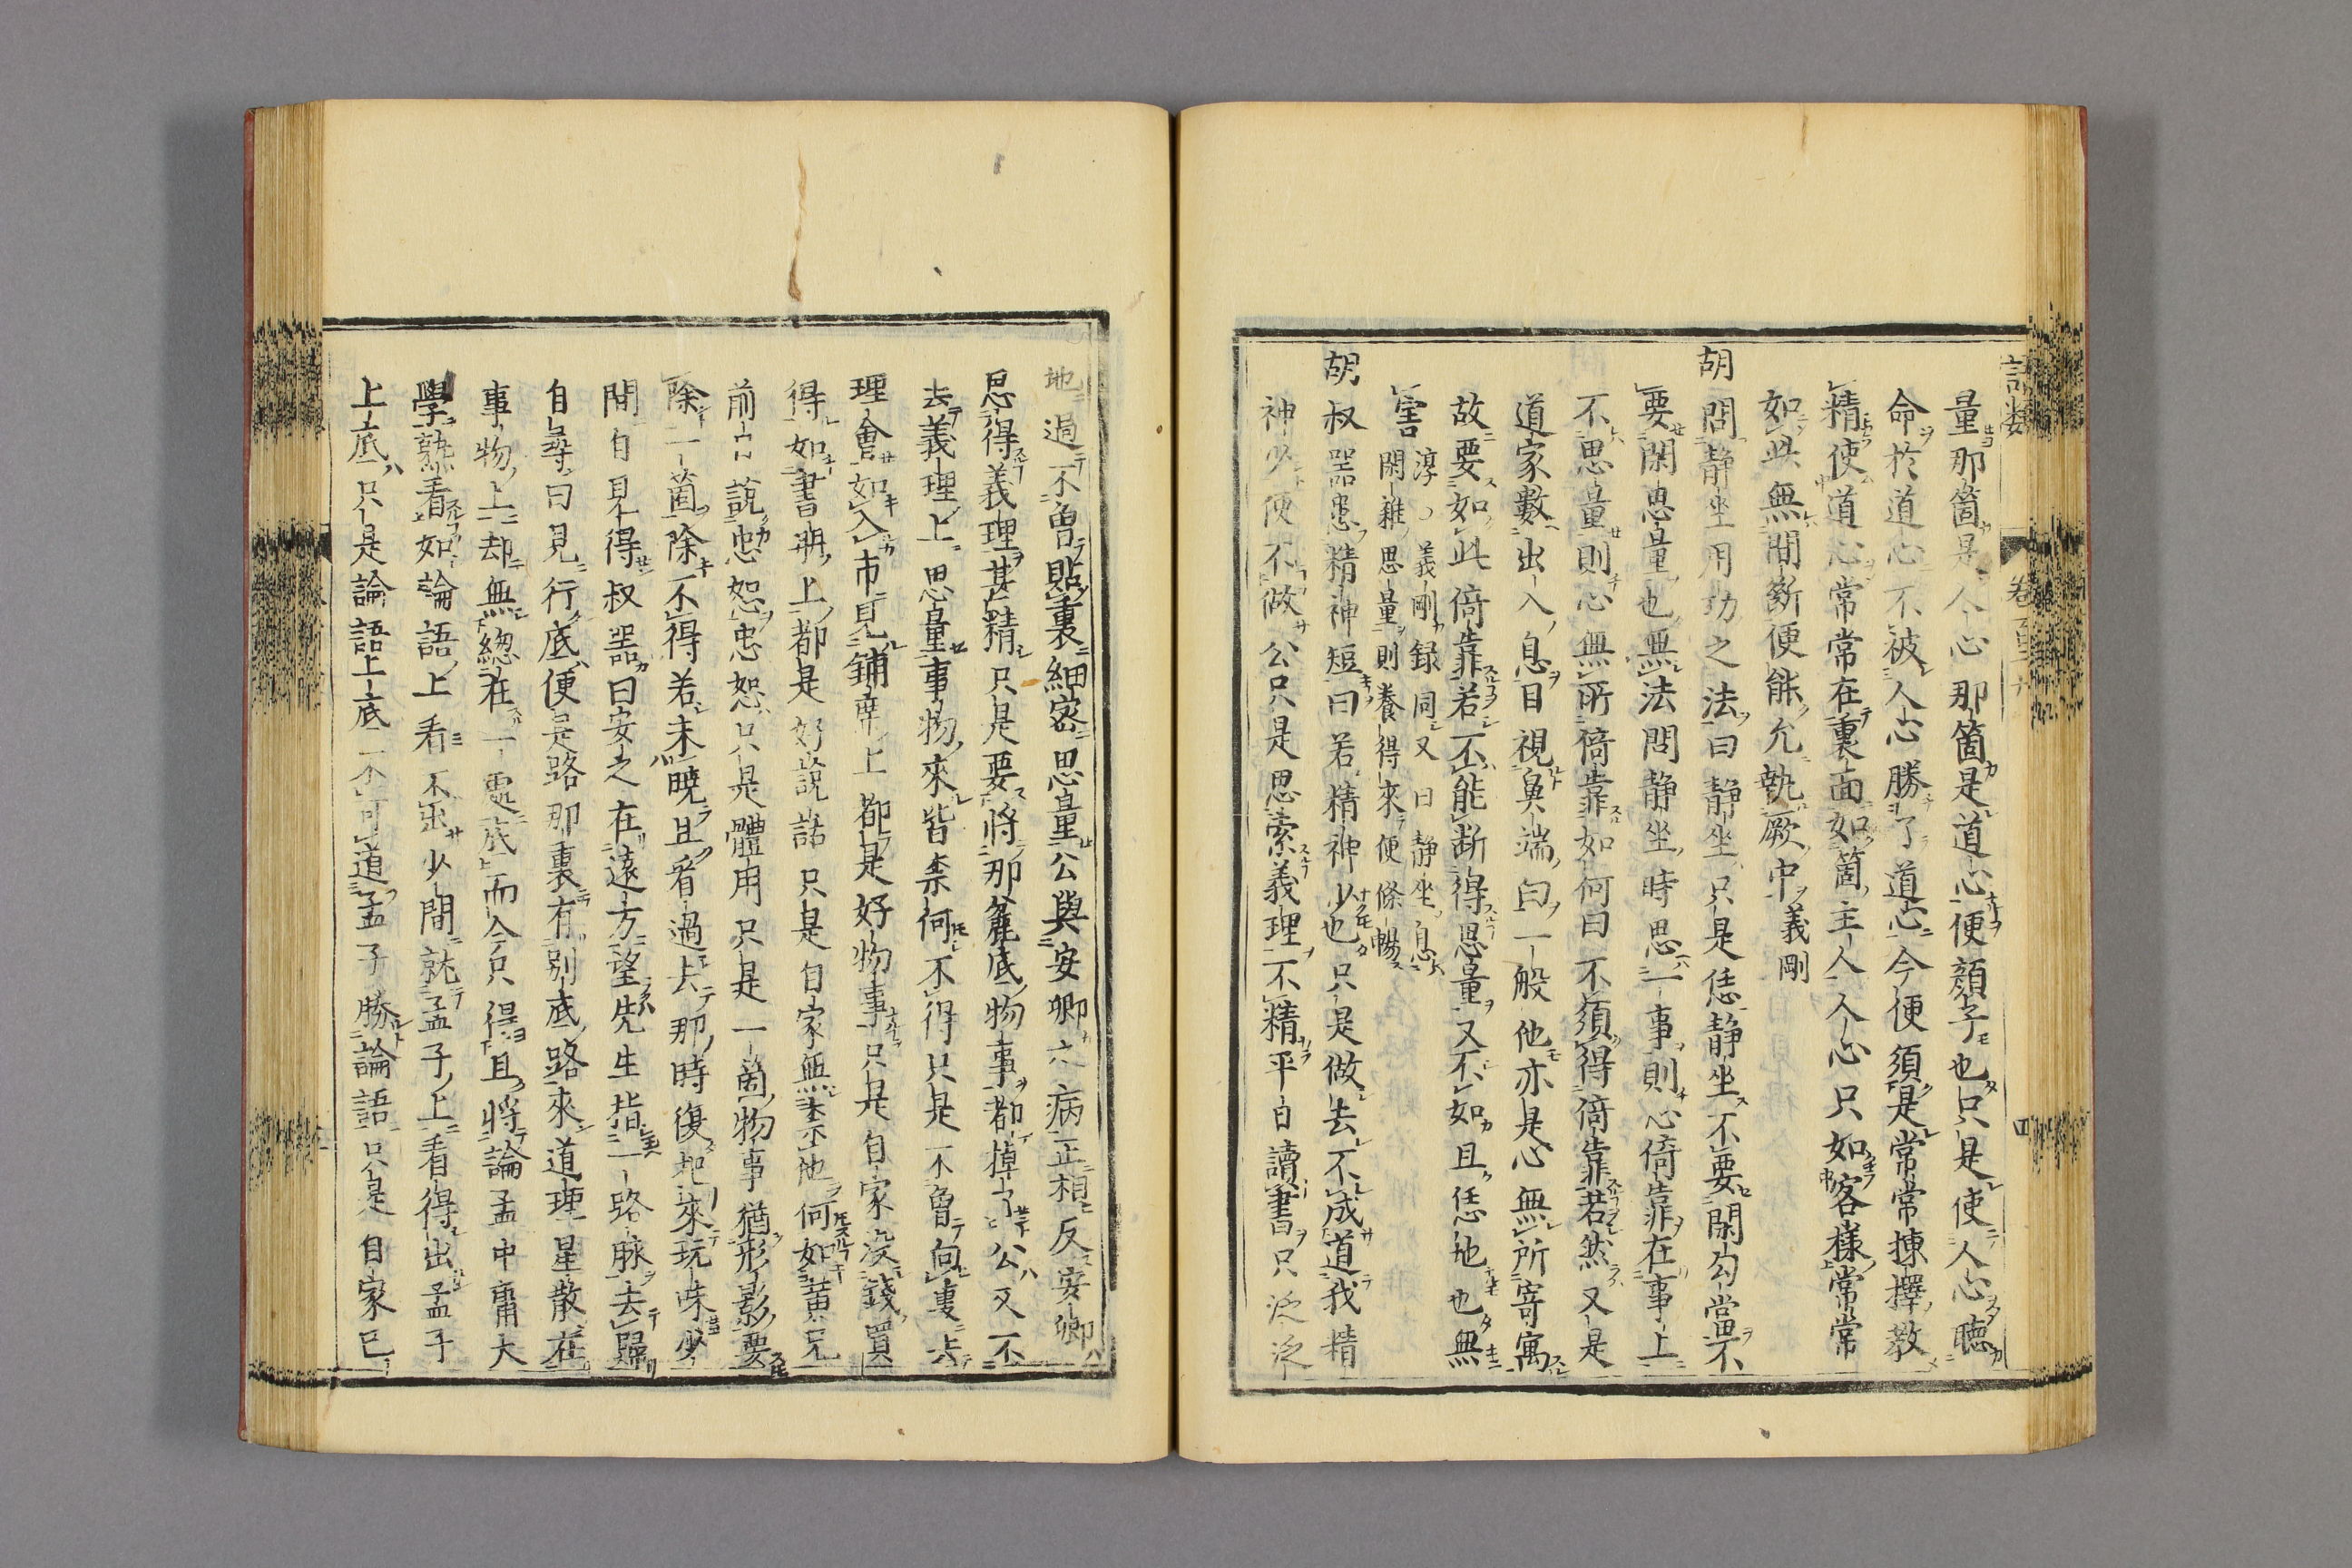 語類
卷百二十
四
量那箇是人心那箇是道心便顔子也只是使人心聴
命於道心不被人心勝了道心今便須是常常揀擇教
精使道心常常在裏面如箇主人人心只如客様常常
如此無間斷便能允執厥中義剛
胡問静坐用功之法曰静坐只是恁静坐不要閑勾當不
要閑思量也無法問静坐時思一事則心倚靠在事上
不思量則心無所倚靠如何曰不須得倚靠若然又是
道家數出入息目視鼻端白一般他亦是心無所寄寓
故要如此倚靠若不能断得思量又不如且恁地也無
害淳義剛録同又曰静坐息
閑雜思量則養得來便條暢
胡叔器患精神短曰若精神少也只是做去不成道我精
神少便不做公只是思索義理不精平日讀書只泛泛
地過不曽貼裏細密思量公與安卿之病正相反安卿
思得義理甚精只是要將那麄底物事都掉了公又不
去義理上思量事物來皆柰何不得只是不曽向裏去
理會如入市見鋪席上都是好物事只是自家沒錢買
得如書冊上都是好說話只是自家無柰他何如黄兄
前日說忠恕忠恕只是體用只是一箇物事猶形影要
除一箇除不得若未曉且看過去那時復把來玩味少
間自見得叔器曰安之在遠方望先生指一路脉去歸
自尋曰見行底便是路那裏有別底路來道理星散在
事物上却無總在一處底而今只得且將論孟中庸大
學熟看如論語上看不出少間就孟子上看得出孟子
上底只是論語上底不可道孟子勝論語只是自家已